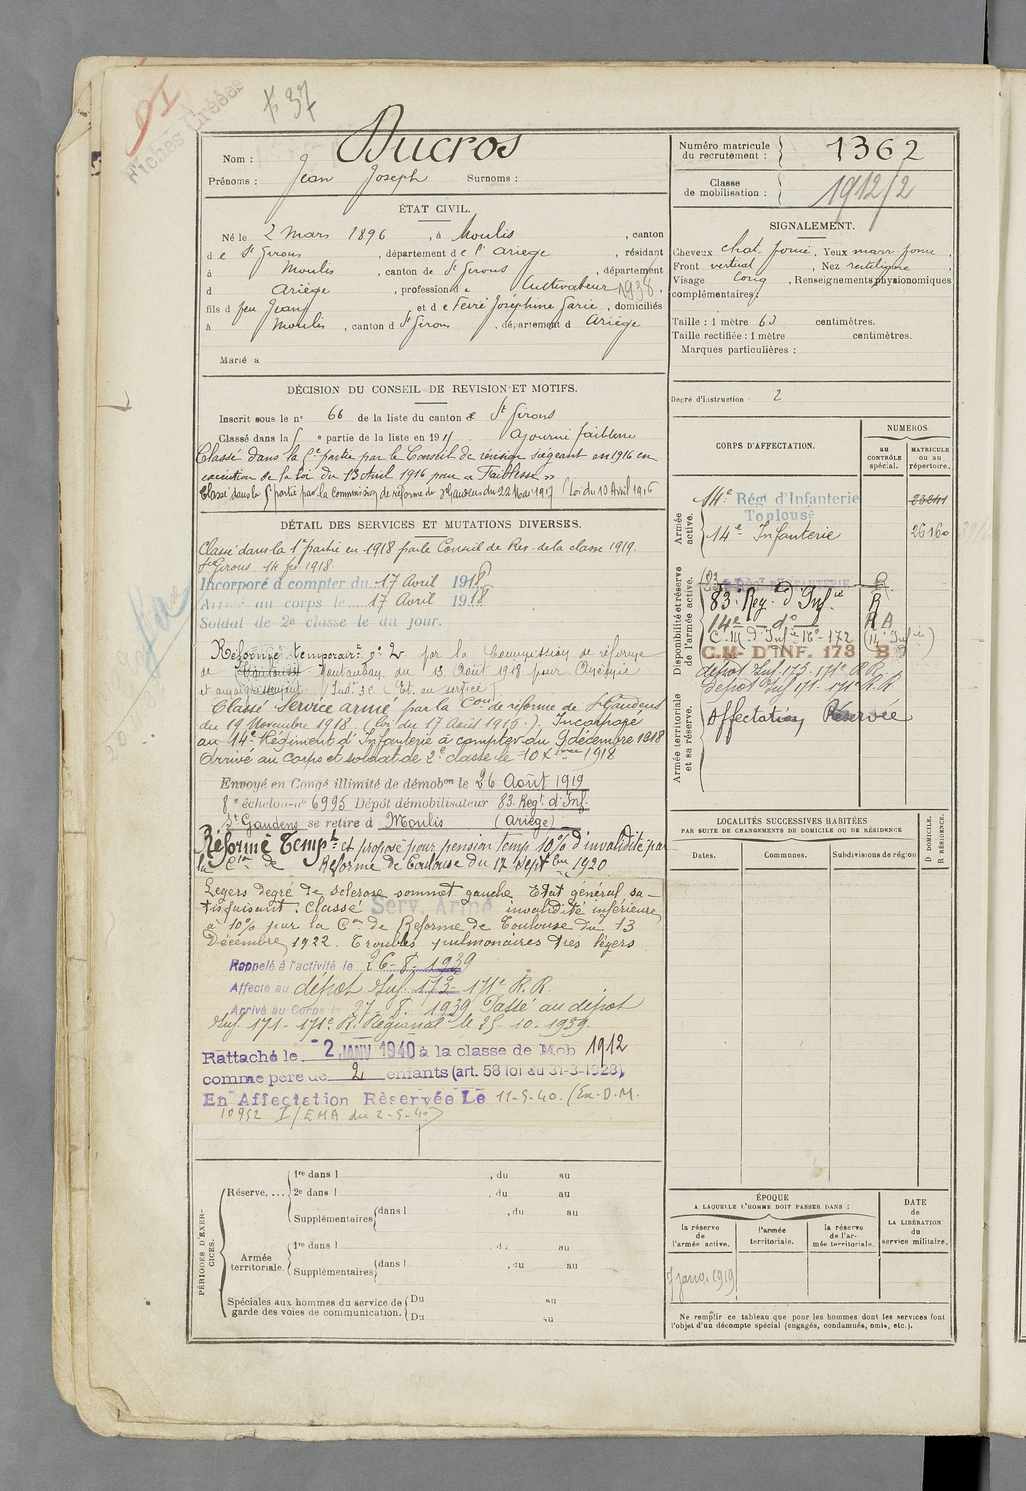 Fiches Créées
37
Nom : Ducros
Prénoms : Jean Joseph Surnoms :
Numéro matricule du recrutement : 1362
Classe de mobilisation : 1912/2
ÉTAT CIVIL.
Né le 2 mars 1896, à Moulis, canton
de St Girons, département de l'Ariège, résidant
à Moulis, canton de St Girons, département
d Ariège, profession de Cultivateur 1938.
fils d feu Jean et de Ferré Joséphine Marie, domiciliés
à Moulis, canton d St Girons, département d Ariège
Marié à
SIGNALEMENT.
Cheveux chat. foncé, Yeux marr. foncé,
Front vertical, Nez rectiligne,
Visage long, Renseignements physionomiques
complémentaires :
Taille : 1 mètre 63 centimètres.
Taille rectifiée : 1 mètre centimètres.
Marques particulières :
Degré d'instruction 2
DÉCISION DU CONSEIL DE REVISION ET MOTIFS.
Inscrit sous le n° 66 de la liste du canton de St Girons
Classé dans la 5e partie de la liste en 1915. Ajourné faiblesse
Classé dans la 5e partie par le Conseil de révision siégeant en 1916 en
exécution de la loi du 13 Avril 1916 pour « Faiblesse »
Classé dans la 5e partie par la commission de réforme de St Gaudens du 22 Mai 1917 (Loi du 10 Avril 1916
DÉTAIL DES SERVICES ET MUTATIONS DIVERSES.
Classé dans la 1re partie en 1918 par le Conseil de Rev. de la classe 1919.
St Girons, 14 fév. 1918
Incorporé à compter du 17 Avril 1918
Arrivé au corps le 17 Avril 1918
Soldat de 2e classe le dit jour.
Réformé temporairt n° 2 par la Commission de réforme
de Montauban du 13 Août 1918 pour Anémie
et amaigrissement (Ind. 3e Et. au service)
Classé Service armé par la Con de réforme de St Gaudens
du 19 Novembre 1918 (loi du 17 Août 1915). Incorporé
au 14e Régiment d'Infanterie à compter du 9 décembre 1918
Arrivé au corps et soldat de 2e classe le 10 Xbre 1918
Envoyé en Congé illimité de démobon le 26 Août 1919
8e échelon n° 6995 Dépôt démobilisateur 83. Regt d'Inf.
St Gaudens se retire à Moulis (Ariège)
Réformé Tempre et proposé pour pension temp 10% d'invalidité par
la Con de Réforme de Toulouse du 17 Septbre 1920
Légers degré de sclérose sommet gauche Etat général sa-
tisfaisant. Classé Serv. Armé invalidité inférieure
à 10% par la Con de Réforme de Toulouse du 13
Décembre 1922. Troubles pulmonaires très légers
Rappelé à l'activité le 26-8-1939
Affecté au dépôt Inf. 173-171e R.R.
Arrivé au Corps le 27-8-1939 Passé au dépôt
Inf. 171-171e R. Régional le 25-10-1939.
Rattaché le -2 JANV 1940 à la classe de Mob 1912
comme père de 2 enfants (art. 58 loi du 31-3-1928),
En Affectation Réservée Le 11-5-40. (Ex. D.M.
10952 I/EMA du 2-5-40)
CORPS D'AFFECTATION.
NUMÉROS
au CONTRÔLE spécial.
MATRICULE ou au répertoire.
Armée active.
14e Régt d'Infanterie
Toulouse
14e Infanterie 26160
Disponibilité et réserve de l'armée active.
83e Reg. d'Infie R
14e do RA
C.M. d'Infie 16e-172 (14e Infie)
C.M. D'INF. 173 B
dépôt Inf. 173-171e R.R.
dépôt Inf 171-171e R.R.
Armée territoriale et sa réserve.
Affectation Réservée
LOCALITÉS SUCCESSIVES HABITÉES
PAR SUITE DE CHANGEMENTS DE DOMICILE OU DE RÉSIDENCE
Dates. Communes. Subdivisions de région
D DOMICILE.
R RÉSIDENCE.
PÉRIODES D'EXERCICES.
Réserve.... 1re dans l , du au
2e dans l , du au
Supplémentaires dans l , du au
Armée territoriale. 1re dans l , du au
Supplémentaires dans l , du au
Spéciales aux hommes du service de Du au
garde des voies de communication. Du au
ÉPOQUE
A LAQUELLE L'HOMME DOIT PASSER DANS :
la réserve de l'armée active.
l'armée territoriale.
la réserve de l'armée territoriale.
DATE de LA LIBÉRATION du service militaire.
Ne remplir ce tableau que pour les hommes dont les services font
l'objet d'un décompte spécial (engagés, condamnés, omis, etc.).